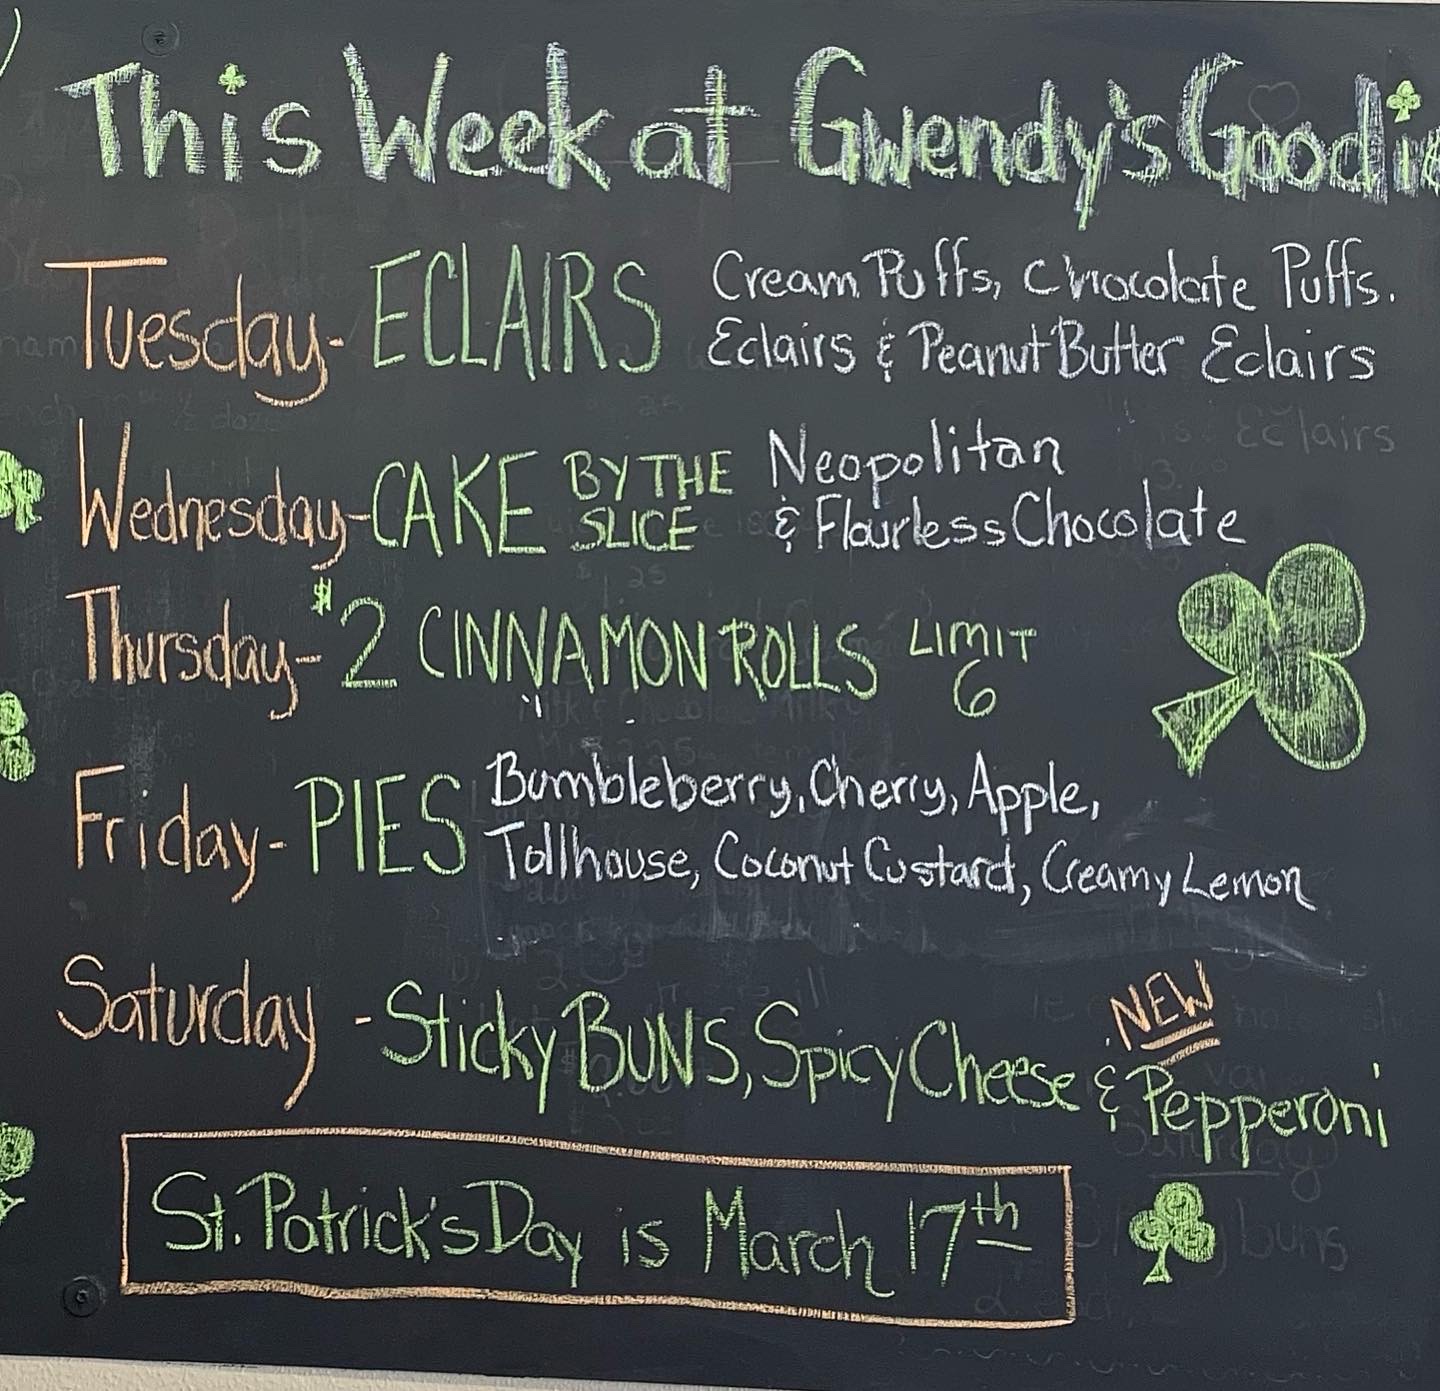 This Week at Gwendy's Goodie
Tuesday- ECLAIRS Cream Puffs, Chocolate Puffs.
Eclairs & Peanut Butter Eclairs
Wednesday- CAKE BY THE SLICE Neopolitan
& Flourless Chocolate
Thursday- $2 CINNAMON ROLLS LIMIT 6
Friday- PIES Bumbleberry, Cherry, Apple,
Tollhouse, Coconut Custard, Creamy Lemon
NEW
Saturday - Sticky BUNS, Spicy Cheese & Pepperoni
St. Patrick's Day is March 17th